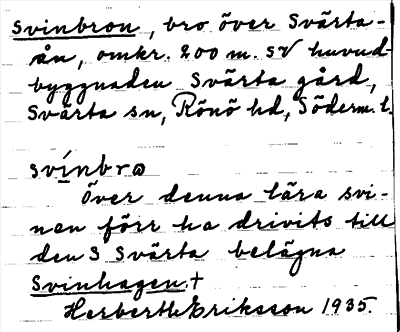 Svinbron, bro över Svärta-
ån, omkr. 200 m. SV huvud-
byggnaden Svärta gård,
Svärta sn, Rönö hd, Söderm. l.
svinbrɷ
Över denna lära svi-
nen förr ha drivits till
den S Svärta belägna
Svinhagen.†
Herbert Eriksson 1935.